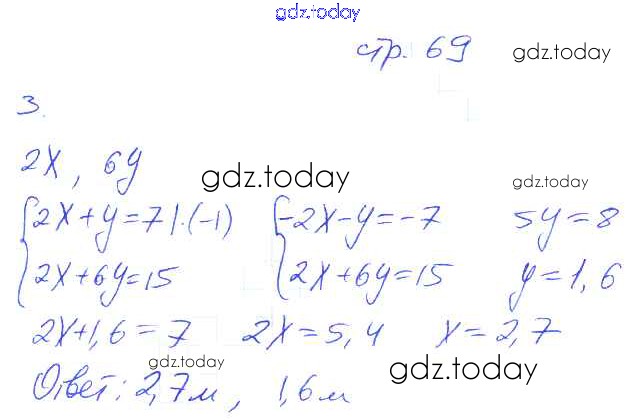 gdz.today
стр. 69 gdz.today
3.
2x, 6y
gdz.today gdz.today
{2x+y=7|·(-1) {-2x-y=-7 5y=8
{2x+6y=15 {2x+6y=15 y=1,6
2x+1,6=7 2x=5,4 x=2,7
gdz.today gdz.today
Ответ: 2,7м, 1,6м